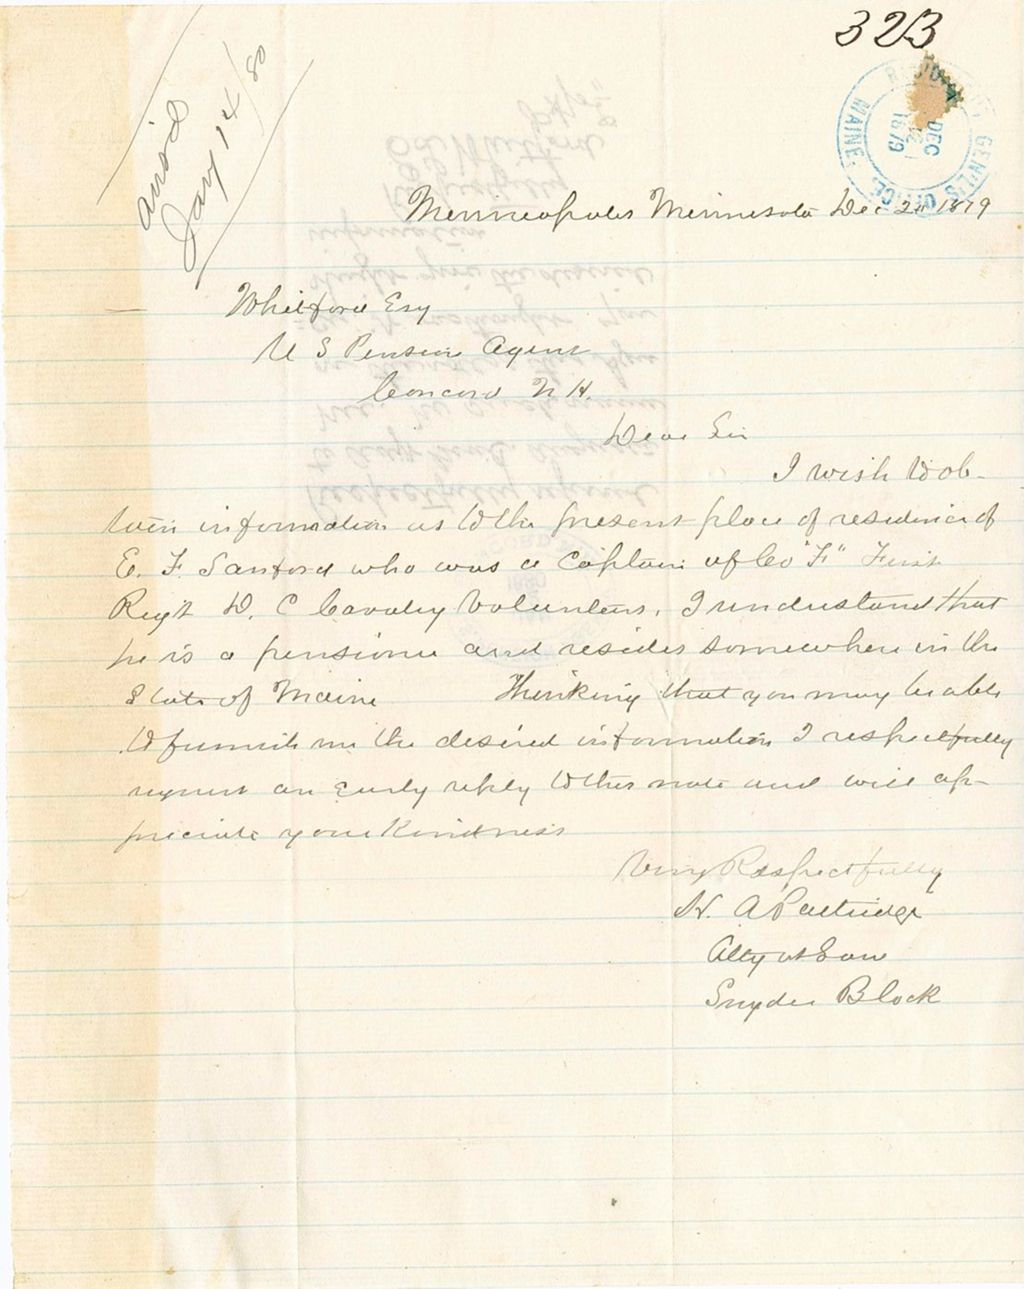 323
ansd
Jany 14/80
ADJUTANT GENL'S OFFICE, MAINE.
DEC
1879
Minneapolis Minnesota Dec 2 1879
Whitford Esq
U S Pension Agent
Concord N H.
Dear Sir
I wish to ob-
tain information as to the present place of residence of
E. F. Sanford who was a Captain of Co "F" First
Regt D. C Cavalry Volunteers, I understand that
he is a pensioner and resides somewhere in the
State of Maine Thinking that you may be able
to furnish me the desired information I respectfully
request an Early reply to this note and will ap-
preciate your Kindness
Very Respectfully
N. A Partridge
Atty at Law
Snyder Block